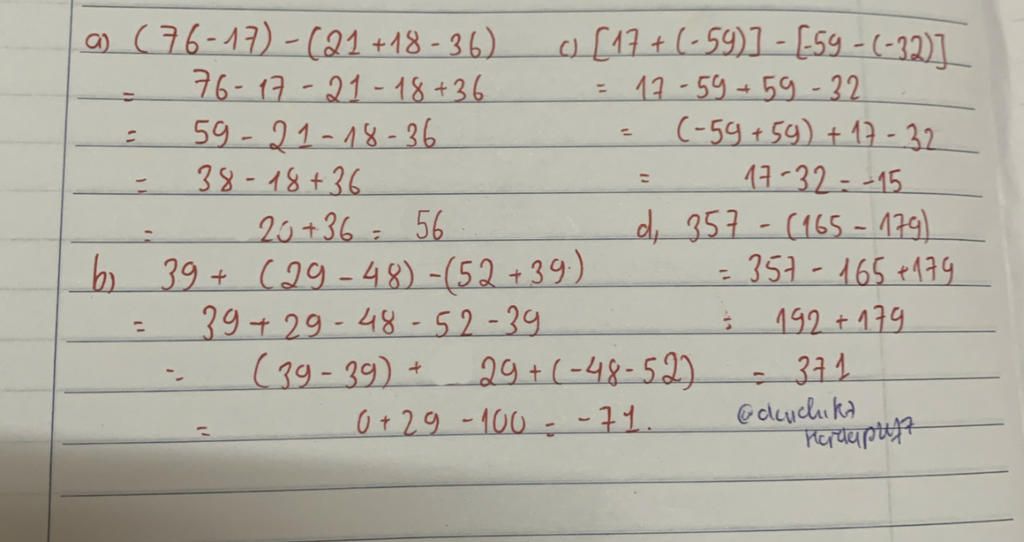 a) (76-17) - (21+18-36)
= 76-17-21-18+36
= 59-21-18-36
= 38-18+36
= 20+36= 56
b) 39+ (29-48) -(52+39)
= 39+29-48-52-39
= (39-39)+ 29+(-48-52)
= 0+29-100= -71.
c) [17+(-59)] - [-59-(-32)]
= 17-59+59-32
= (-59+59)+17-32
= 17-32=-15
d, 357 - (165-179)
= 357-165+179
= 192+179
= 371